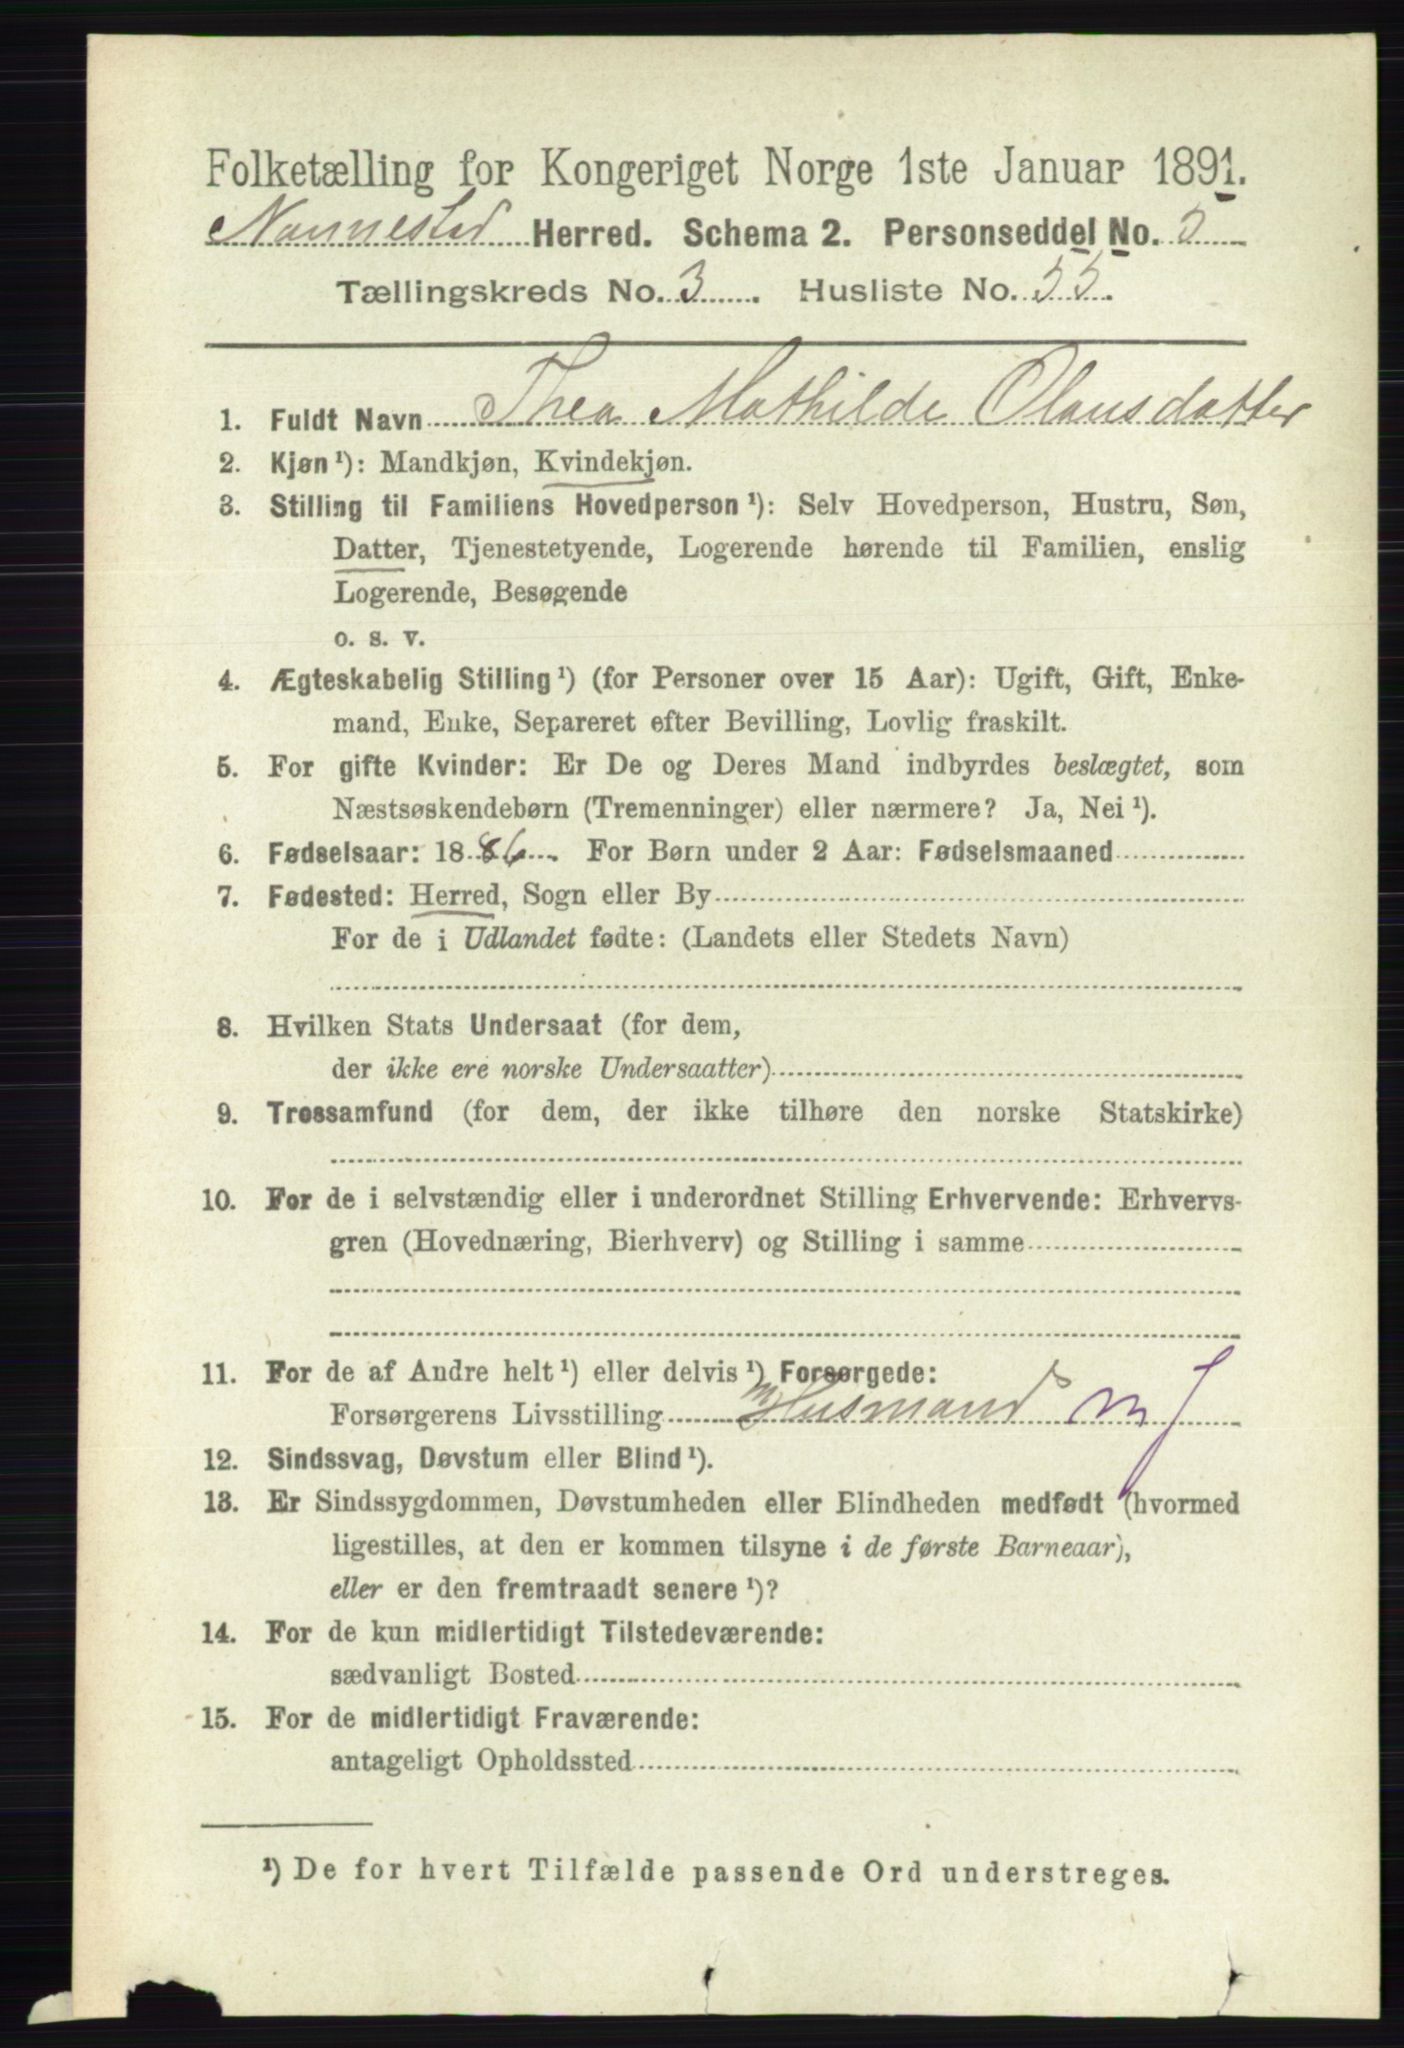 Folketælling for Kongeriget Norge 1ste Januar 1891.
Nannestad Herred. Schema 2. Personseddel No. 5
Tællingskreds No. 3. Husliste No. 55.
1. Fuldt Navn Thea Mathilde Olausdatter
2. Kjøn ¹): Mandkjøn, Kvindekjøn.
3. Stilling til Familiens Hovedperson ¹): Selv Hovedperson, Hustru, Søn,
Datter, Tjenestetyende, Logerende hørende til Familien, enslig
Logerende, Besøgende
o. s. v.
4. Ægteskabelig Stilling ¹) (for Personer over 15 Aar): Ugift, Gift, Enke-
mand, Enke, Separeret efter Bevilling, Lovlig fraskilt.
5. For gifte Kvinder: Er De og Deres Mand indbyrdes beslægtet, som
Næstsøskendebørn (Tremenninger) eller nærmere? Ja, Nei ¹).
6. Fødselsaar: 1886. For Børn under 2 Aar: Fødselsmaaned
7. Fødested: Herred, Sogn eller By
For de i Udlandet fødte: (Landets eller Stedets Navn)
8. Hvilken Stats Undersaat (for dem,
der ikke ere norske Undersaatter)
9. Trossamfund (for dem, der ikke tilhøre den norske Statskirke)
10. For de i selvstændig eller i underordnet Stilling Erhvervende: Erhvervs-
gren (Hovednæring, Bierhverv) og Stilling i samme
11. For de af Andre helt ¹) eller delvis ¹) Forsørgede:
Forsørgerens Livsstilling m Husmand m J
12. Sindssvag, Døvstum eller Blind ¹).
13. Er Sindssygdommen, Døvstumheden eller Blindheden medfødt (hvormed
ligestilles, at den er kommen tilsyne i de første Barneaar),
eller er den fremtraadt senere ¹)?
14. For de kun midlertidigt Tilstedeværende:
sædvanligt Bosted
15. For de midlertidigt Fraværende:
antageligt Opholdssted
¹) De for hvert Tilfælde passende Ord understreges.